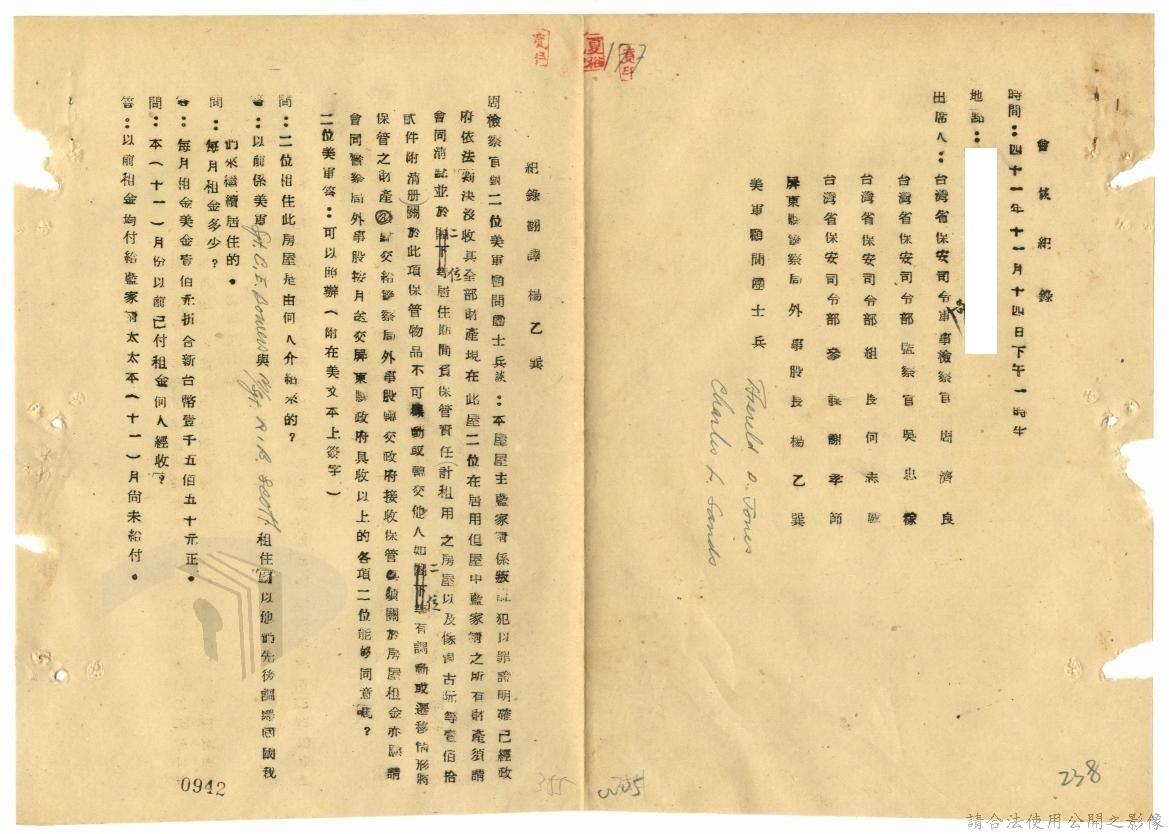 會談紀錄
時間：四十一年十一月十四日下午一時半
地點：
出席人：台灣省保安司令部軍事檢察官 周濟良
台灣省保安司令部監察官 吳忠
台灣省保安司令部組長 何志
台灣省保安司令部參謀 謝孝師
屏東縣警察局外事股長 楊乙巽
美軍顧問團士兵 Harold D. Jones
Charles L. Sands
紀錄翻譯 楊乙巽
周檢察官對二位美軍顧問團士兵談：本屋屋主藍家精係叛亂犯以罪證明確已經政
府依法判決沒收其全部財產現在此屋二位在居用但屋中藍家精之所有財產須請
會同清點並於二位居住期間負保管責任（計租用之房屋以及傢俱古玩等壹佰拾
貳件附清册）關於此項保管物品不可移動或轉交他人如二位有調動或遷移情形將
保管之財產轉交給警察局外事股轉交政府接收保管關於房屋租金亦請
會同警察局外事股按月送交屏東縣政府具收以上的各項二位能够同意嗎？
二位美軍答：可以照辦（附在美文本上簽字）
問：二位租住此房屋是由何人介紹來的？
答：以前係美軍 Sgt. C.E. Somers 與 M/Sgt. R.B. Scott. 租住以他們先後調還回國我
們來繼續居住的。
問：每月租金多少？
答：每月租金美金壹佰元折合新台幣壹千五佰五十元正。
問：本（十一）月份以前已付租金何人經收？
答：以前租金均付給藍家精太太本（十一）月尚未給付。
0942
355
238
請合法使用公開之影像